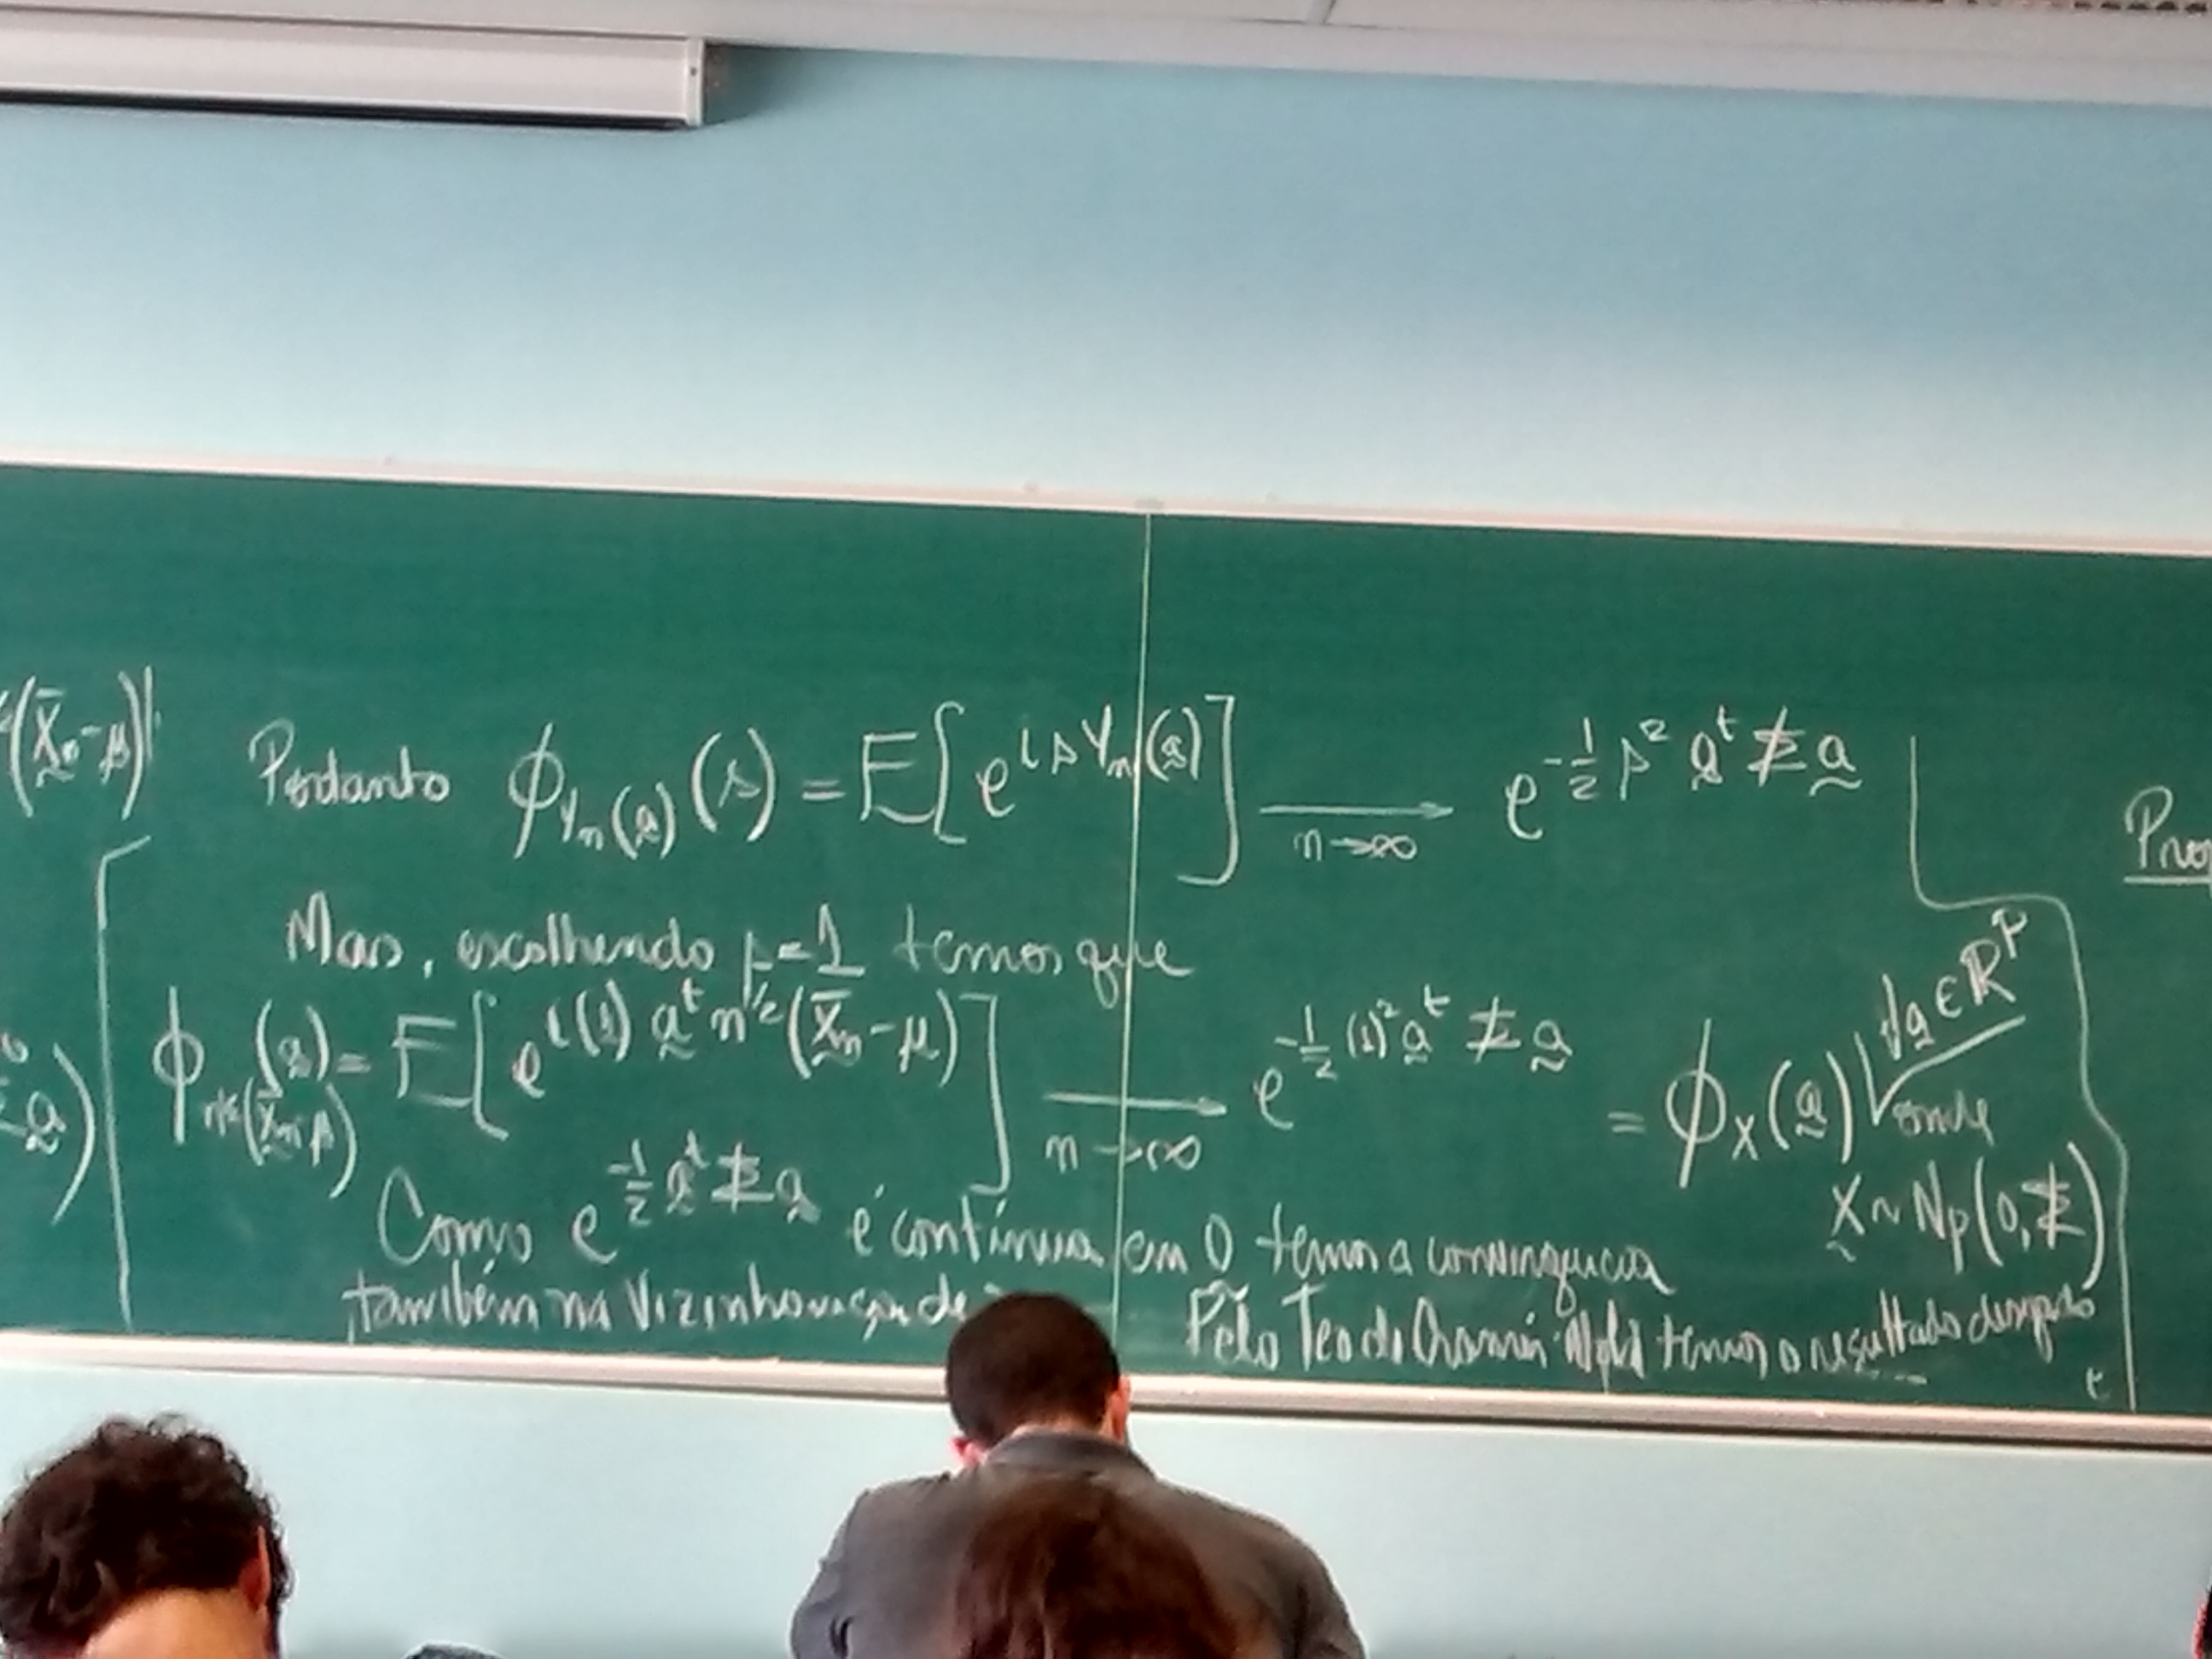 (X̄n-μ)
Portanto ϕYn(a)(s) = E[e^{isYn(a)}] → n→∞ e^{-1/2 s² a^t Σ a}
Mas, escolhendo s=1 temos que
ϕn^{1/2}(X̄n-μ)(a) = E[e^{i(1) a^t n^{1/2}(X̄n-μ)}] → n→∞ e^{-1/2 (1)² a^t Σ a} = ϕX(a) ∀a∈ℝ^p
onde
X~Np(0,Σ)
Como e^{-1/2 a^t Σ a} é contínua em 0 temos a convergência
também na vizinhança de
Pelo Teo de Cramér-Wold temos o resultado desejado